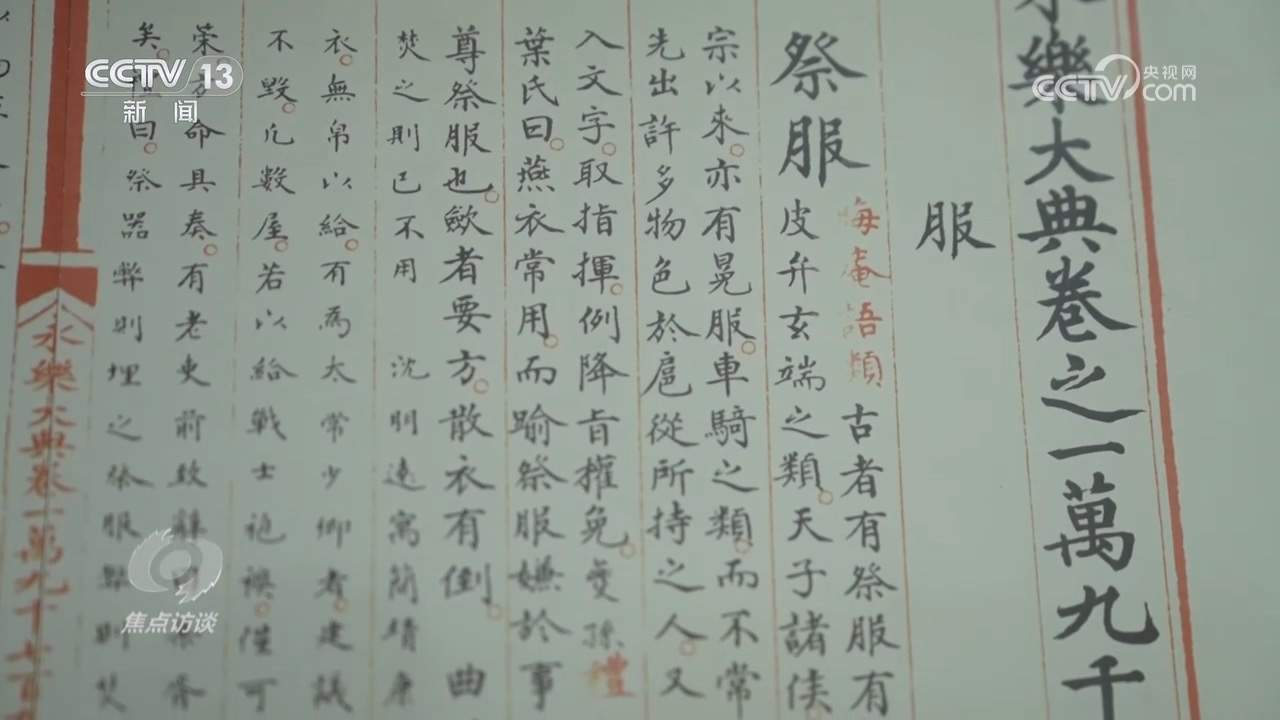 CCTV 13
新闻
央视网
CCTV.com
永樂大典卷之一萬九千
服
祭服
晦菴語類 古者有祭服有
皮弁玄端之類。天子諸侯
宗以來。亦有晃服。車騎之類。而不常
先出許多物色於扈從所持之人。又
入文字。取指揮。例降旨權免。 禮
葉氏曰。燕衣常用。而踰祭服嫌於事
尊祭服也。斂者要方。散衣有倒。 曲
焚之則已不用 沈明遠寓簡靖康
衣。無帛以給。有為太常少卿者。建議
不毀。凡數屋。若以給戰士袍襖。僅可
命具奏。有老吏前致
矣。禮曰。祭器弊則埋之。祭服弊則焚
永樂大典卷一萬九千七百九
焦点访谈